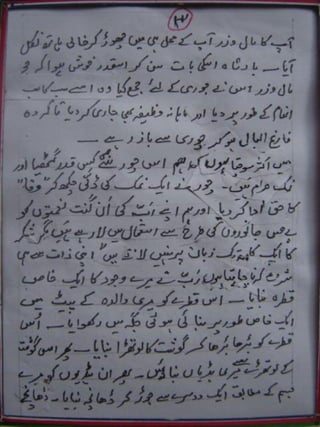 ۲۲
آپ کا مال و زر آپ کے محل ہی میں چھوڑ کر خالی ہاتھ نکل
آیا۔ بادشاہ اسکی بات سن کر اسقدر خوش ہوا کہ جو
مال و زر اس نے چوری کے لئے جمع کیا وہ اسے سب کا سب
انعام کے طور پر دیا اور ماہانہ وظیفہ بھی جاری کر دیا تاکہ وہ
فارغ البال ہو کر چوری سے باز رہے۔
میں اکثر سوچتا ہوں کہ ہم اس چور سے کس قدر گھٹیا اور
نمک حرام ہیں۔ چور نے ایک نمک کی ڈلی چکھ کر "وفا"
کا حق ادا کر دیا اور ہم اپنے رب کی ان گنت نعمتوں کو
بے حس جانوروں کی طرح سے استعمال میں لا رہے ہیں مگر شکر
کا ایک کلمہ تک زبان پر نہیں لاتے میں اپنی ذات سے ہی
شروع کرنا چاہتا ہوں رب نے میرے وجود کا ایک خاص
قطرہ بنایا۔ اس قطرے کو میری والدہ کے پیٹ میں
ایک خاص طور پر بنائی ہوئی جگہ میں رکھوایا۔ اس
قطرہ کو بڑھا بڑھا کر گوشت کا لوتھڑا بنایا۔ پھر اس گوشت
کے لوتھڑے سے میری ہڈیاں بنائیں۔ پھر ان ہڈیوں کو میرے
جسم کے مطابق ایک دوسرے سے جوڑ کر ڈھانچہ بنایا۔ ڈھانچے